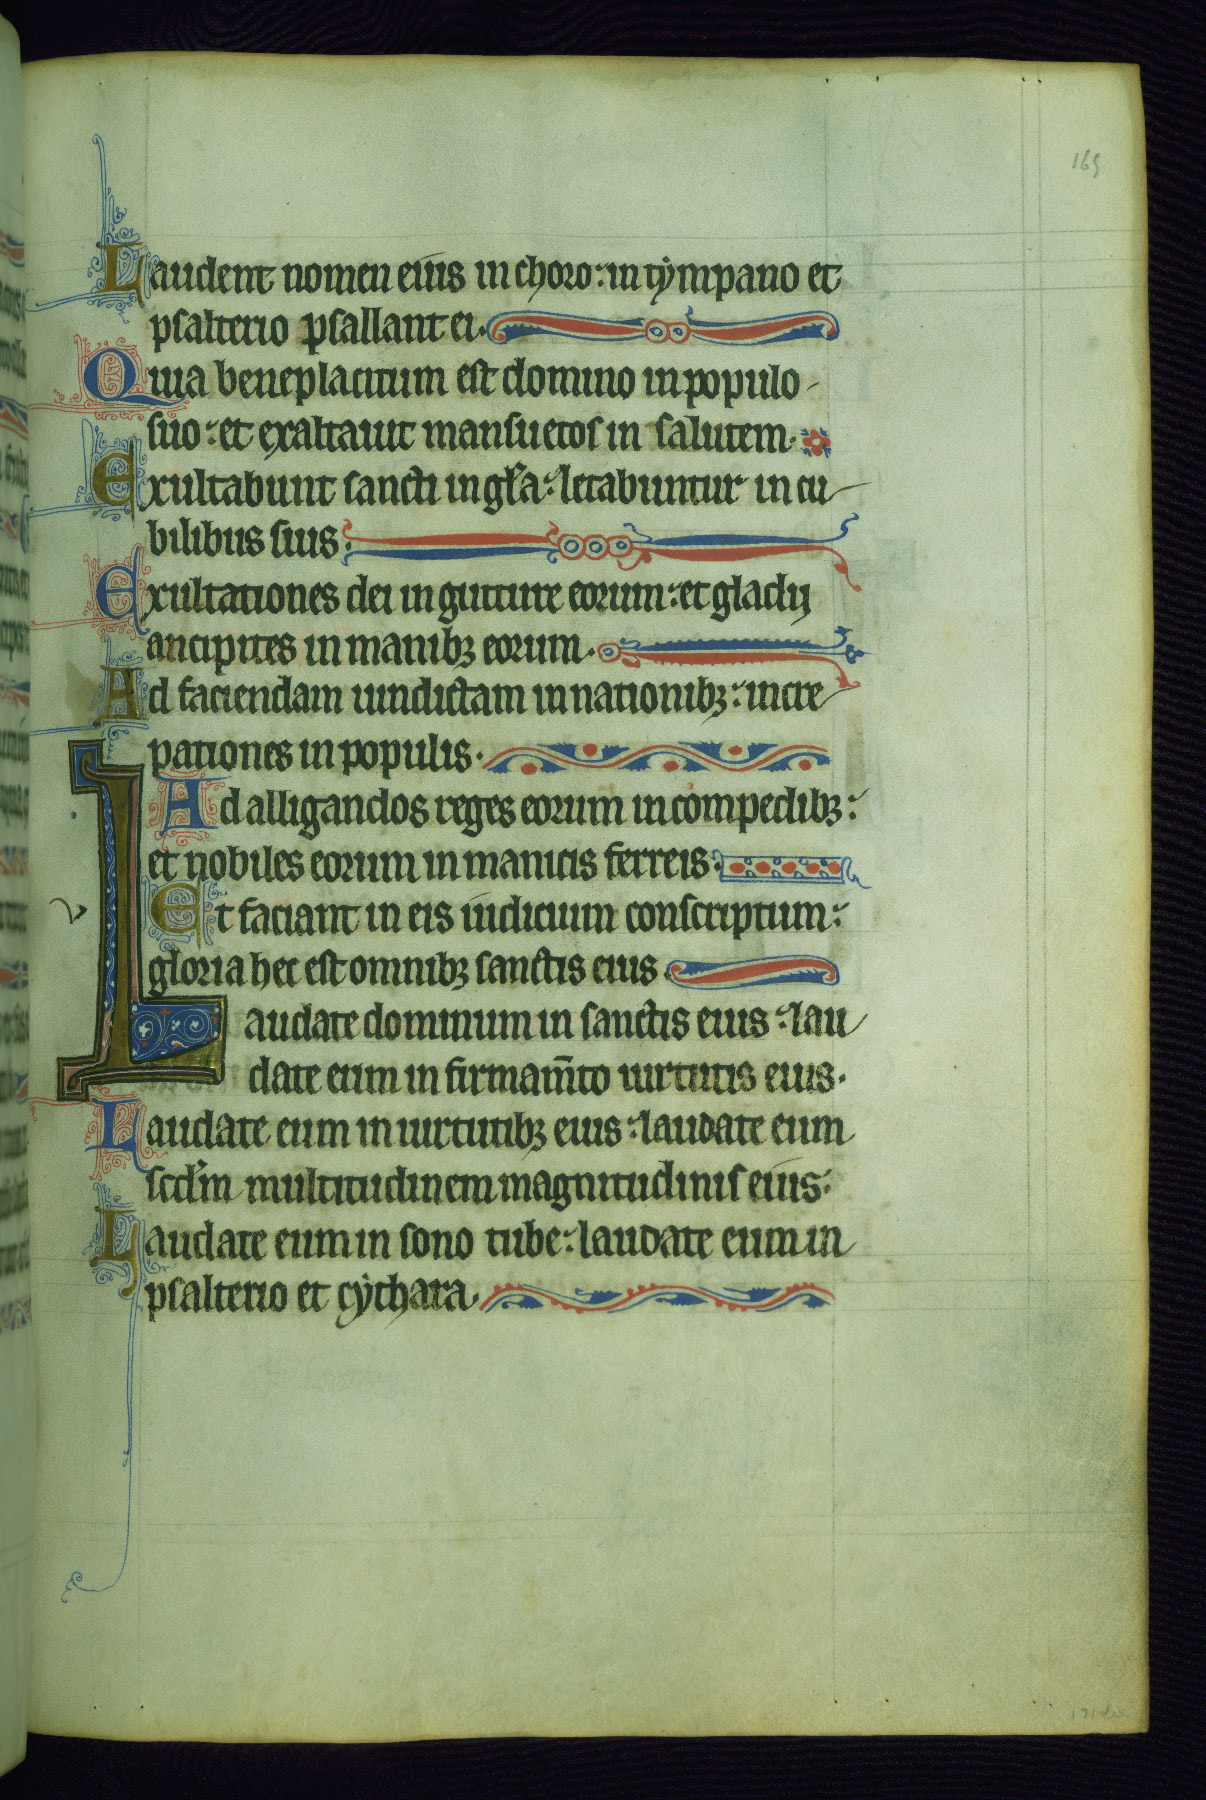 165
Laudent nomen eius in choro: in tympano et
psalterio psallant ei.
Quia beneplacitum est domino in populo
suo: et exaltauit mansuetos in salutem.
Exultabunt sancti in gl̃a: letabuntur in cu
bilibus suis.
Exultationes dei in gutture eorum: et gladij
ancipites in manibꝫ eorum.
Ad faciendam uindictam in nationibꝫ: incre
pationes in populis.
Ad alligandos reges eorum in compedibꝫ:
et nobiles eorum in manicis ferreis.
Et faciant in eis iudicium conscriptum:
gloria hec est omnibꝫ sanctis eius.
Laudate dominum in sanctis eius: lau
date eum in firmam̃to uirtutis eius.
Laudate eum in uirtutibꝫ eius: laudate eum
scd̃m multitudinem magnitudinis eius.
Laudate eum in sono tube: laudate eum in
psalterio et cythara.